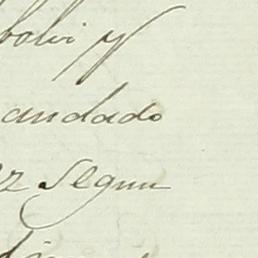 bolvi y
andado
ez segun